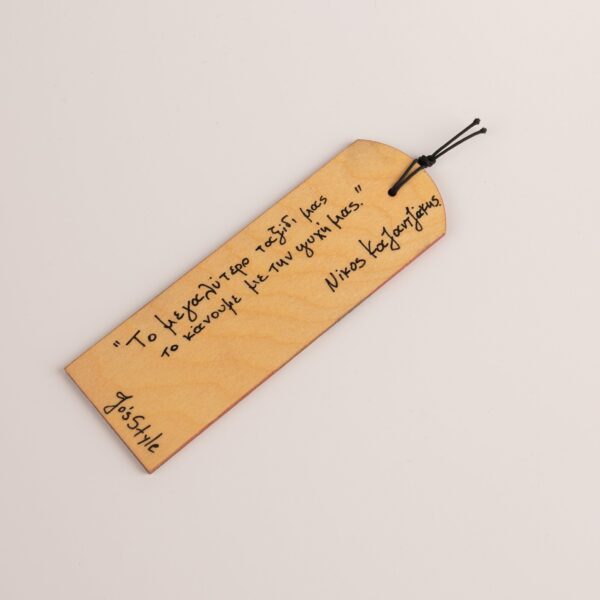 "Το μεγαλύτερο ταξίδι μας
το κάνουμε με την ψυχή μας."
Νίκος Καζαντζάκης.
Jo'sStyle